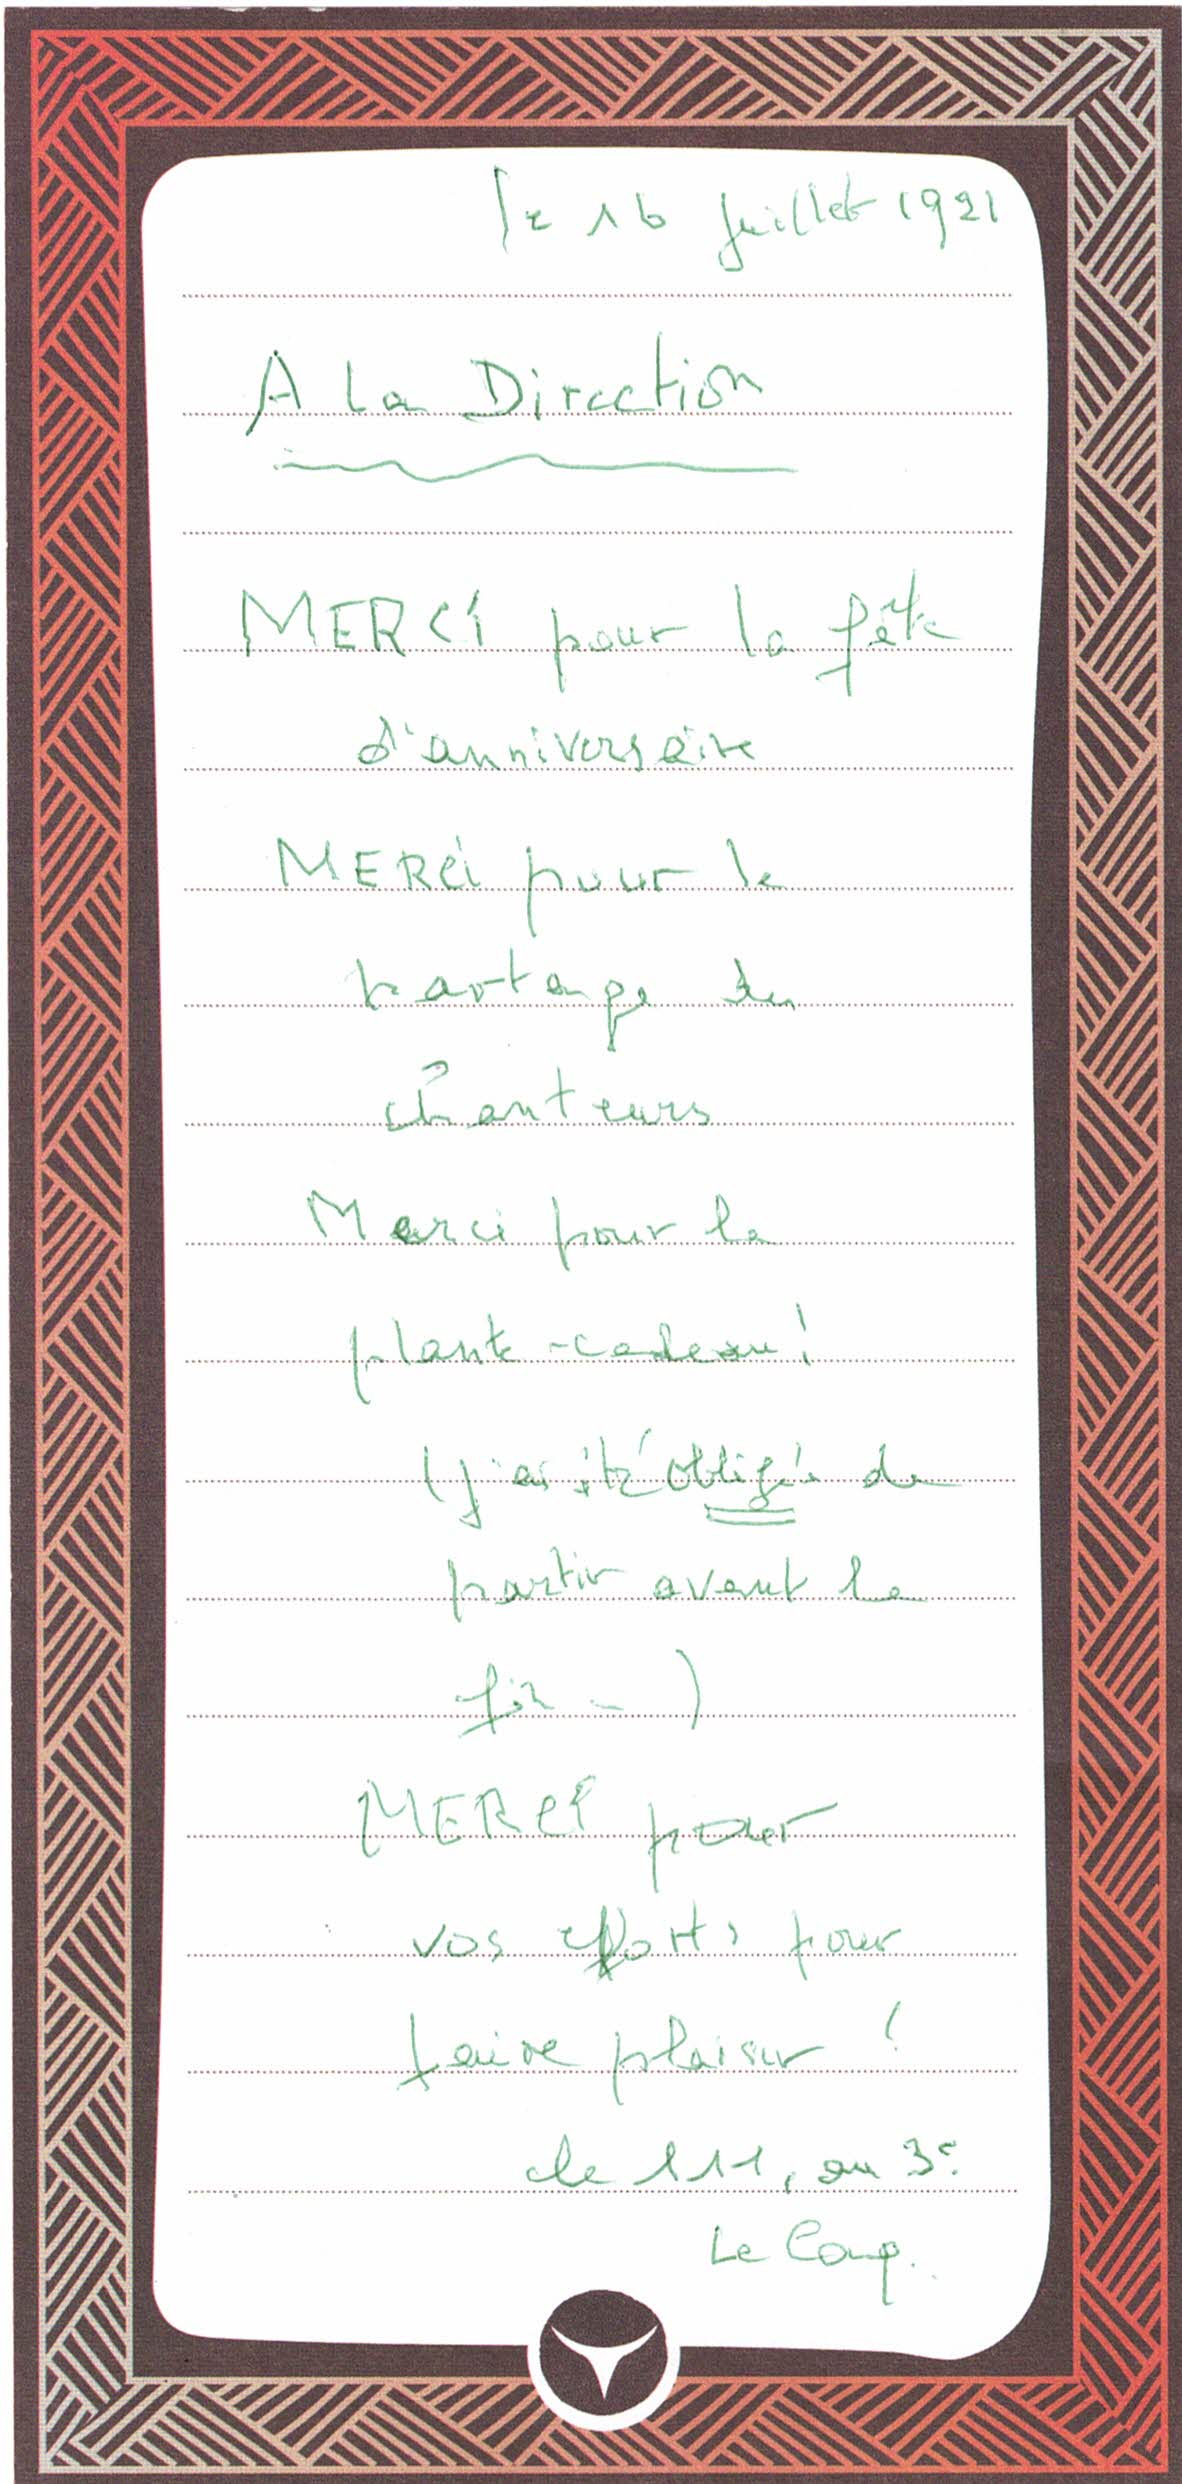 le 16 juillet 1921
A La Direction
MERCI pour la fête
d'anniversaire
MERCI pour le
partage des
chanteurs
Merci pour la
plante-cadeau!
(j'ai été obligée de
partir avant la
fin -)
MERCI pour
vos efforts pour
faire plaisir !
de 111, au 3e
Le